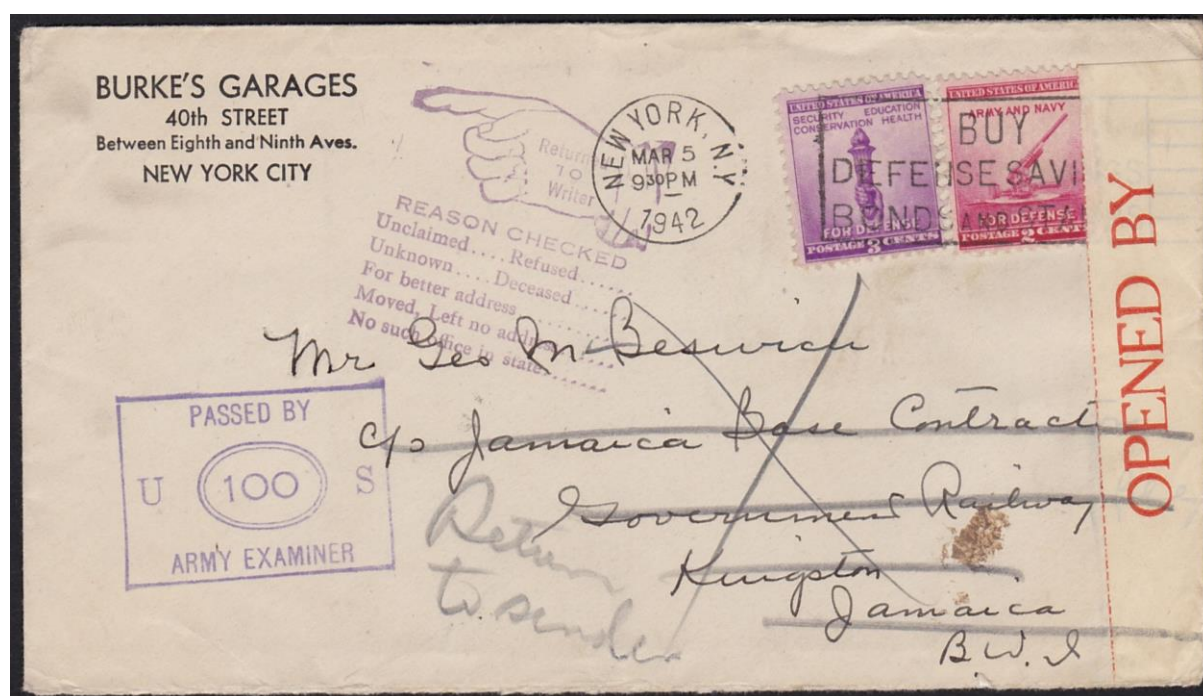 BURKE'S GARAGES
40th STREET
Between Eighth and Ninth Aves.
NEW YORK CITY
Returned
TO
Writer
REASON CHECKED
Unclaimed.... Refused......
Unknown.... Deceased......
For better address
Moved, Left no address
No such office in state
NEW YORK, N.Y.
MAR 5
930PM
1942
UNITED STATES OF AMERICA
SECURITY EDUCATION
CONSERVATION HEALTH
FOR DEFENSE
POSTAGE 3 CENTS
UNITED STATES OF AMERICA
ARMY AND NAVY
FOR DEFENSE
POSTAGE 2 CENTS
BUY
DEFENSE SAVI
BONDS AND STA
OPENED BY
Mr Geo M Beswick
c/o Jamaica Base Contract
Government Railway
Kingston
Jamaica
B.W.I
Return
to sender
PASSED BY
U 100 S
ARMY EXAMINER